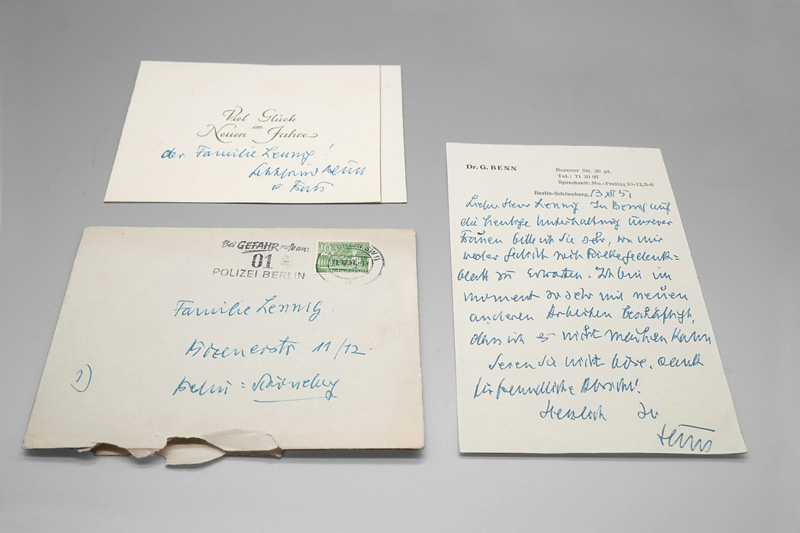 Viel Glück
im
Neuen Jahre
der Familie Lennig!
Benn
u. Frau
Bei GEFAHR rufe an:
01
POLIZEI BERLIN
Familie Lennig
Bozenerstr 11/12.
Berlin = Schöneberg
1)
Dr. G. BENN
Bozener Str. 20 pt.
Tel.: 71 20 97
Sprechzeit: Mo.-Freitag 10-12, 5-6
Berlin-Schöneberg, 13 XII 51
Lieber Herr Lennig. In Bezug auf
die heutige Unterhaltung unserer
Frauen bitte ich Sie sehr, von mir
weder Gedicht noch Rilkegedenk=
blatt zu erwarten. Ich bin im
Moment so sehr mit neuen
anderen Arbeiten beschäftigt,
dass ich es nicht machen kann
Seien Sie nicht böse, Dank
für freundliche Absicht!
Herzlich Ihr
Benn